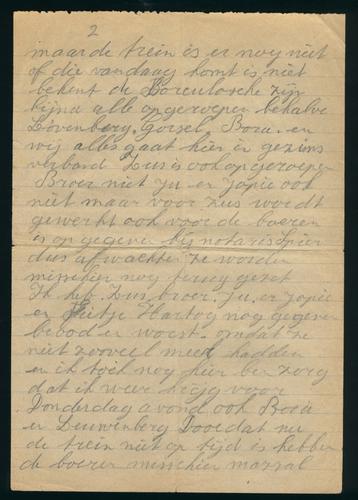 2
maar de trein is er nog niet
of die vandaag komt is niet
bekent de Loreulosche zijn
bijna alle opgeroepen behalve
Lövenberg, Gorsel, Bora en
wij alles gaat hier in gezins
verband Zus is ook opgeroepen
Broer niet Ju en Jopie ook
niet maar voor zus wordt
gewerkt ook voor de boeren
is opgegeven bij notaris
dus afwachten ze worden
misschien nog terug gezet
Ik heb Zus, broer, Ju, en Jopie
en Hartog nog gegeven
brood en worst omdat ze
niet zooveel meer hadden
en ik toch nog hier ben zorg
dat ik weer krijg voor
Donderdag avond ook Bora
en Leuwenberg Doordat nu
de trein niet op tijd is hebben
de boeren misschien